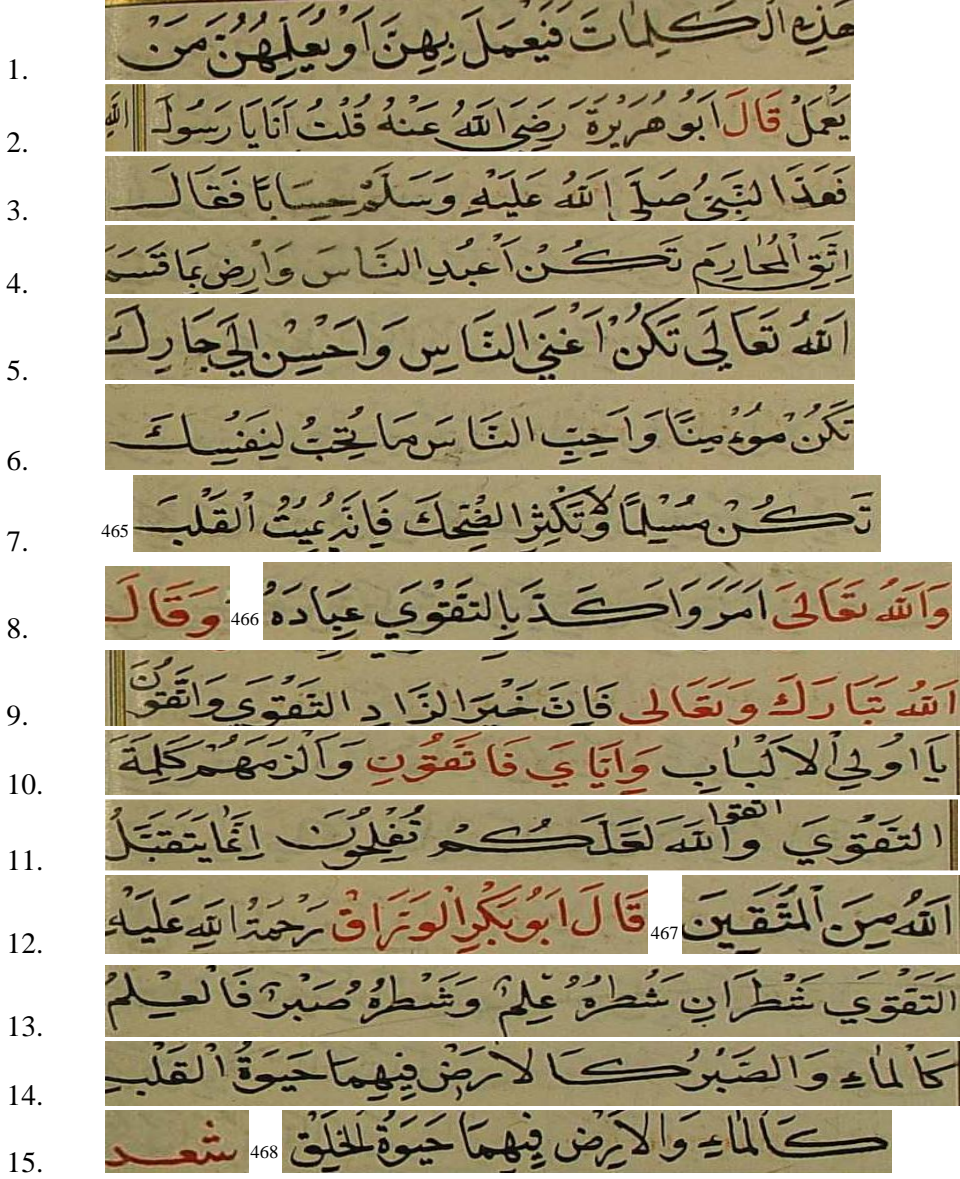 1. هَذِهِ الْكَلِمَاتَ فَيَعْمَلَ بِهِنَّ اَوْ يُعَلِّمُهُنَّ مَنْ
2. يَعْمَلُ قَالَ اَبُو هُرَيْرَةَ رَضِيَ اللهُ عَنْهُ قُلْتُ اَنَا يَا رَسُولَ اللهِ
3. فَعَدَّ النَّبِيُّ صَلَّى اللهُ عَلَيْهِ وَسَلَّمَ حِسَابًا فَقَالَ
4. اِتَّقِ الْمَحَارِمَ تَكُنْ اَعْبُدِ النَّاسَ وَارْضِ بِمَا قَسَمَ
5. اَللهُ تَعَالَى تَكُنْ اَغْنَي النَّاسِ وَاَحْسِنْ اِلَي جَارِكَ
6. تَكُنْ مُوءْمِنًا وَاَحِبِّ النَّاسَ مَا تُحِبُّ لِنَفْسِكَ
7. تَكُنْ مُسْلِمًا لَا وَتَكْثِرِ الضِّحِكَ فَاِنَّهُ يُمِيتُ الْقَلْبَ 465
8. وَاللهُ تَعَالَى اَمَرَ وَاَكَّدَ بِالتَّقْوَي عِبَادَهُ 466 وَقَالَ
9. اَللهُ تَبَارَكَ وَتَعَالى فَاِنَّ خَيْرَ الزَّادِ التَّقْوَي وَاتَّقُونَ
10. يَا اُولِي الْاَلْبَابِ وَاِيَّايَ فَاتَّقُونِ وَاَلْزَمَهُمْ كَلِمَةَ
11. التَّقْوَي وَاتقوا اللهَ لَعَلَّكُمْ تُفْلِحُونَ اِنَّمَا يَتَقَبَّلُ
12. اَللهُ مِنَ الْمُتَّقِينَ 467 قَالَ اَبُو بَكْرِ الْوَرَّاقْ رَحْمَةُ اللهِ عَلَيْهِ
13. اَلتَّقْوَي شَطْرَانِ شَطْرُهُ عِلْمٌ وَشَطْرُهُ صَبْرٌ فَالْعِلْمُ
14. كَالْمَاءِ وَالصَّبْرُ كَالْاَرْضِ فِيهِمَا حَيَوةُ الْقَلْبِ
15. كَالْمَاءِ وَالْاَرْضِ فِيهِمَا حَيَوةُ الْخَلْقِ 468 شعد